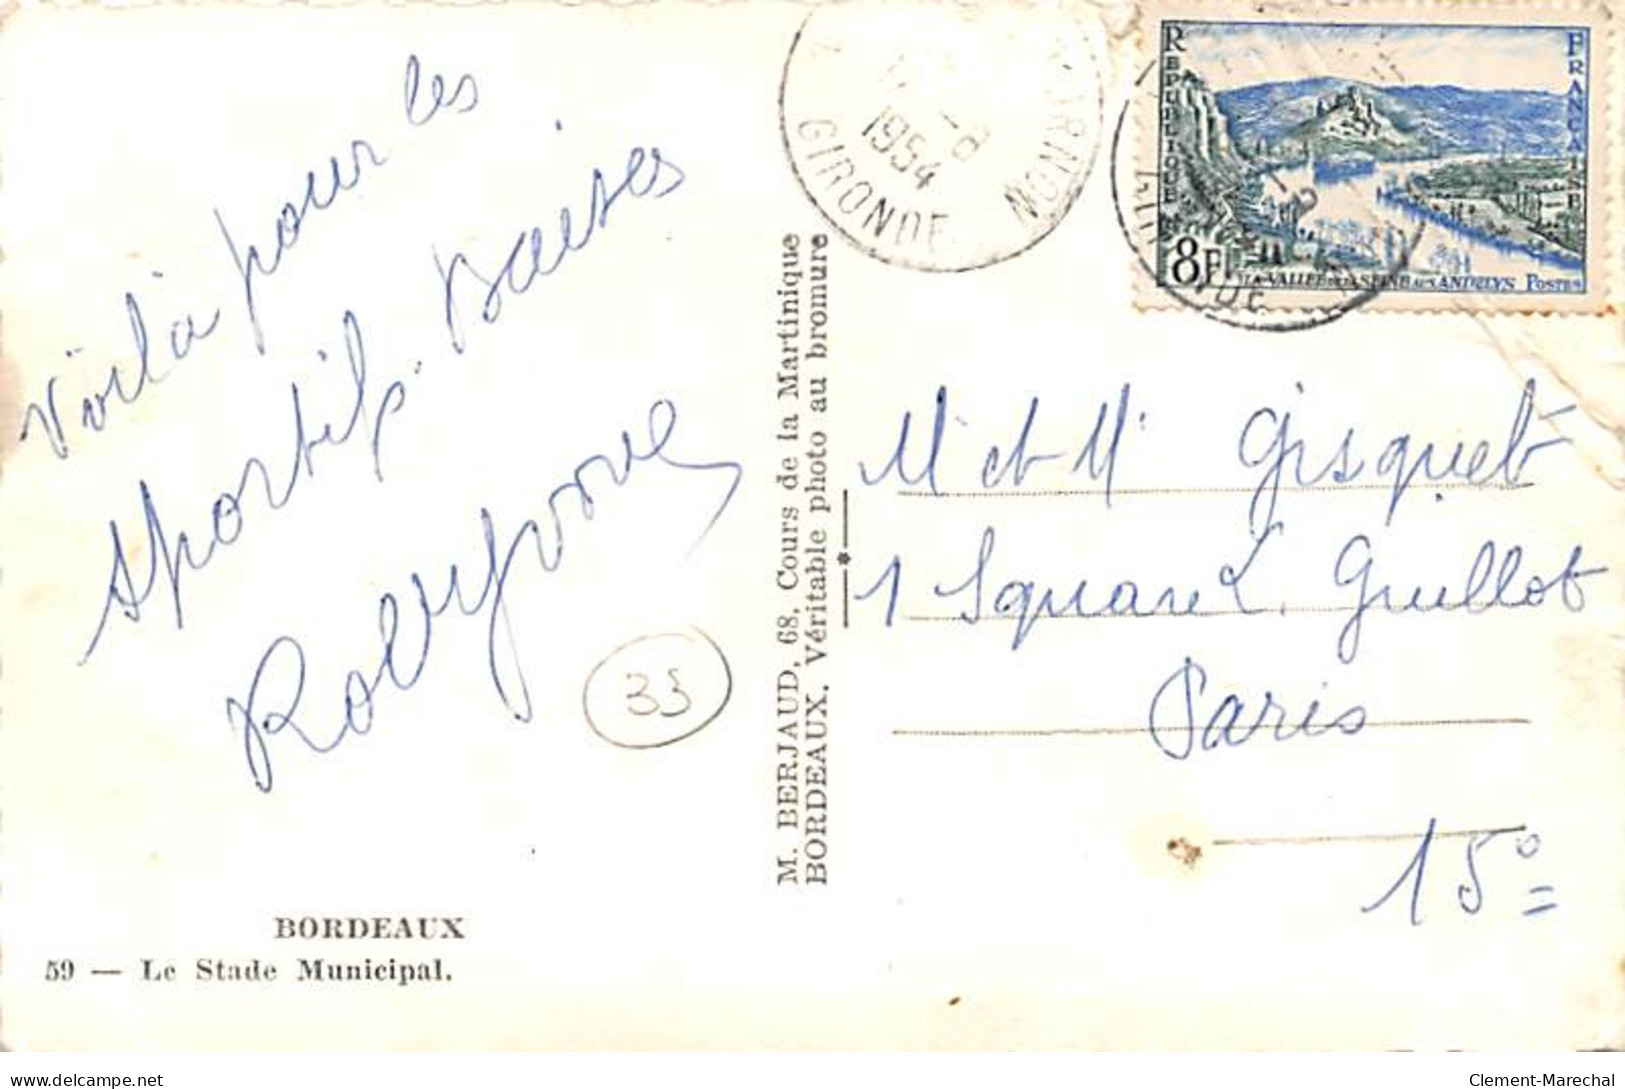 Voilà pour les
sportifs. Baises
BORDEAUX
59 — Le Stade Municipal.
33
M. BERJAUD, 68, Cours de la Martinique
BORDEAUX. Véritable photo au bromure
1954
GIRONDE
RÉPUBLIQUE
FRANÇAISE
8F LA VALLÉE DE LA SEINE AUX ANDELYS POSTES
M et M Gisquet
1 Square L. Guillot
Paris
15e
delcampe.net
Clement-Marechal